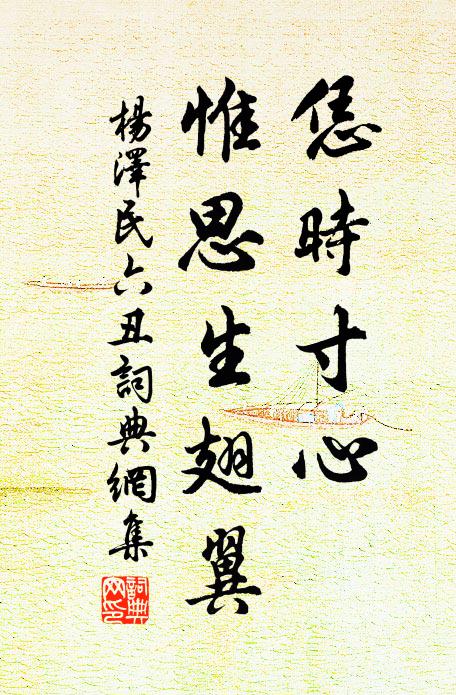 恁時寸心
惟思生翅翼
楊澤民六丑詞典網集
詞典网印